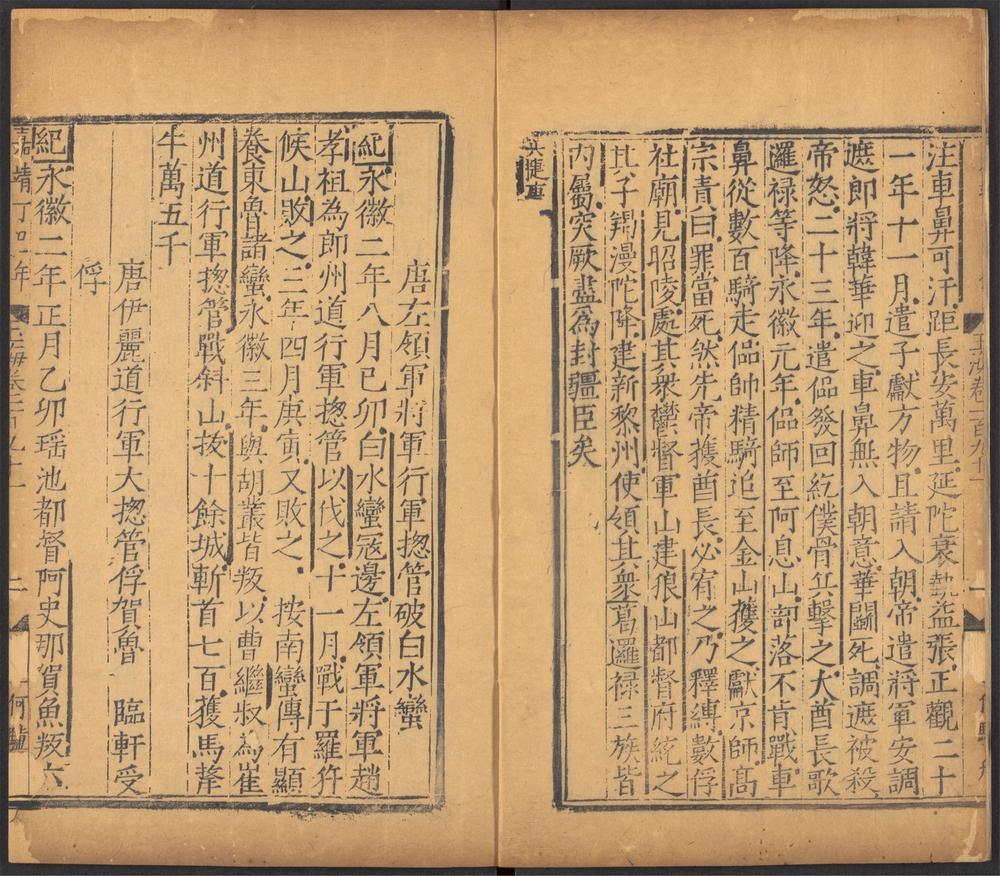 注車鼻可汗距長安萬里延陀衰熱益張正觀二十
一年十一月遣子獻方物且請入朝帝遣將軍安調
遮即將韓華迎之車鼻無入朝意華鬬死調遮被殺
帝怒二十三年遣偘發回紇僕骨兵擊之大酋長歌
邏禄等降永徽元年偘師至阿息山部落不肯戰車
鼻從數百騎走偘帥精騎追至金山獲之獻京師高
宗青曰罪當死然先帝獲酋長必宥之乃釋縛數俘
社廟見昭陵處其衆欝督軍山建狼山都督府統之
其子羯漫陀降建新黎州使領其衆葛邏禄三族皆
内屬突厥盡為封疆臣矣
兵捷
唐左領軍將軍行軍揔管破白水蠻
紀永徽二年八月已卯白水蠻冦邊左領軍將軍趙
孝祖為郎州道行軍揔管以伐之十一月戰于羅仵
候山敗之三年四月庚寅又敗之 按南蠻傳有顯
養東魯諸蠻永徽三年與胡叢皆叛以曹繼叔為嶲
州道行軍揔管戰斜山抜十餘城斬首七百獲馬犛
牛萬五千
唐伊麗道行軍大揔管俘賀魯 臨軒受
俘
紀永徽二年正月乙卯瑶池都督阿史那賀魚叛六
嘉靖丁巳年
二
何